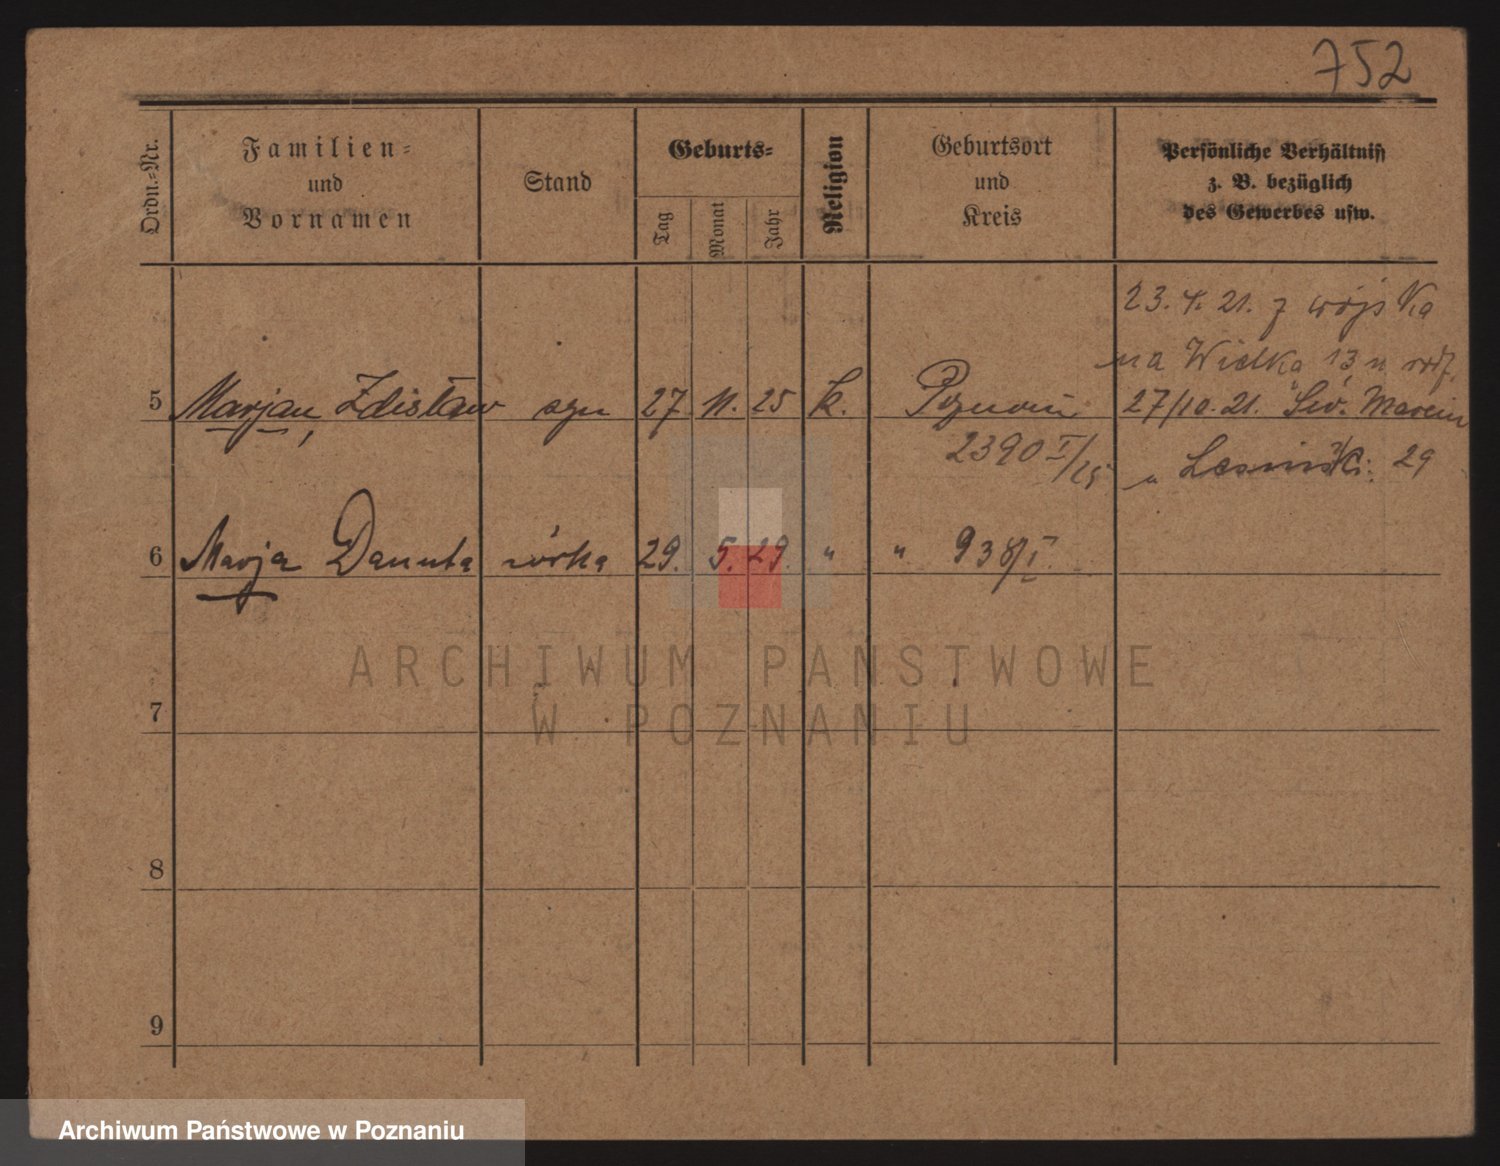 752
Ordn.-Nr.
Familien-
und
Vornamen
Stand
Geburts-
Tag
Monat
Jahr
Religion
Geburtsort
und
Kreis
Persönliche Verhältniss
z. B. bezüglich
des Gewerbes usw.
23. 4. 21. z wojska
na Wielka 13 u rodz.
5 Marjan, Zdisław syn 27 11. 25 k. Poznań 27/10. 21. Św. Marcin
2390 I/25 u 29
6 Marja Danuta córka 29. 5. 29. " " 938/I.
7
8
9
ARCHIWUM PAŃSTWOWE
W POZNANIU
Archiwum Państwowe w Poznaniu